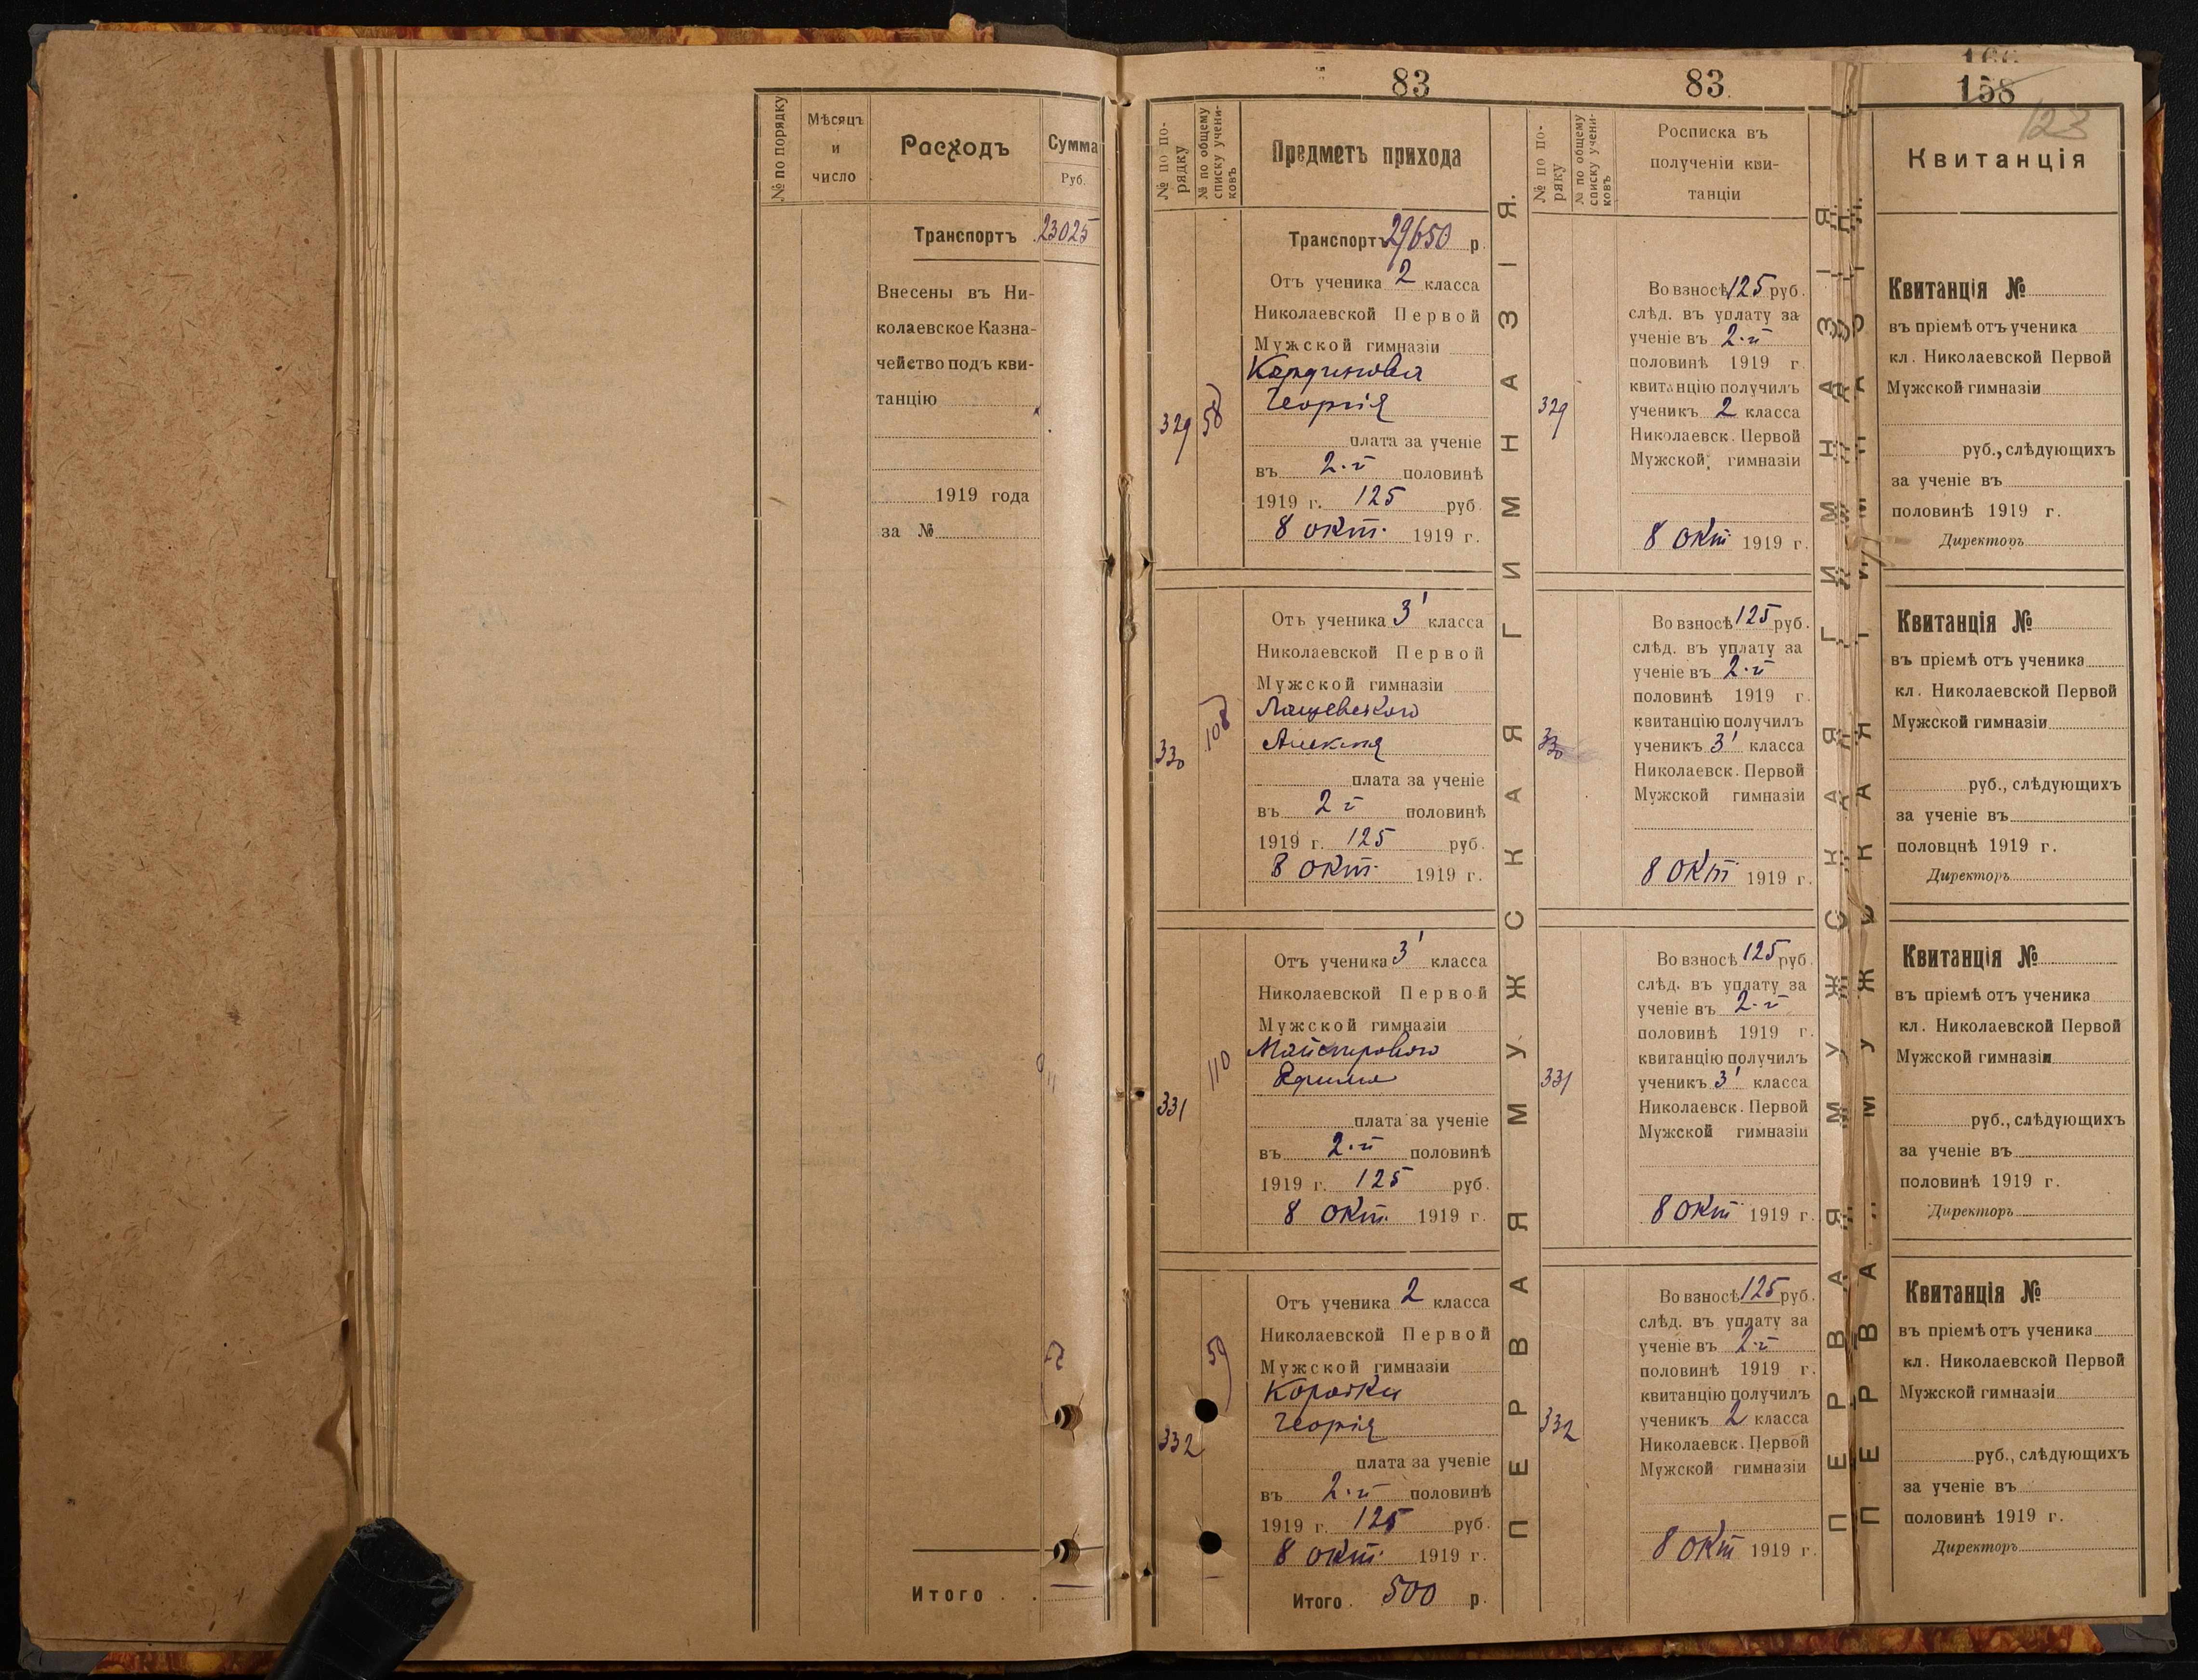 № по порядку
Мѣсяцъ
и
число
Расходъ
Сумма
Руб.
Транспортъ 23025
Внесены въ Ни-
колаевское Казна-
чейство подъ кви-
танцію
1919 года
за №
Итого . .
83
№ по по-
рядку
№ по общему
списку учени-
ковъ
Предметъ прихода
Транспортъ 29650 р.
329
58
Отъ ученика 2 класса
Николаевской Первой
Мужской гимназіи
Георгія
плата за ученіе
въ 2-й половинѣ
1919 г. 125 руб.
8 окт. 1919 г.
330
108
Отъ ученика 3' класса
Николаевской Первой
Мужской гимназіи
Лащевского
плата за ученіе
въ 2-й половинѣ
1919 г. 125 руб.
8 окт. 1919 г.
331
110
Отъ ученика 3' класса
Николаевской Первой
Мужской гимназіи
Майстрового
Ефима
плата за ученіе
въ 2-й половинѣ
1919 г. 125 руб.
8 окт. 1919 г.
332
59
Отъ ученика 2 класса
Николаевской Первой
Мужской гимназіи
Коротки
Георгія
плата за ученіе
въ 2-й половинѣ
1919 г. 125 руб.
8 окт. 1919 г.
Итого . 500 р.
ПЕРВАЯ МУЖСКАЯ ГИМНАЗІЯ.
83.
№ по по-
ряку
№ по общему
списку учени-
ковъ
Росписка въ
полученіи кви-
танціи
329
Во взносѣ 125 руб.
слѣд. въ уплату за
ученіе въ 2-й
половинѣ 1919 г.
квитанцію получилъ
ученикъ 2 класса
Николаевск. Первой
Мужской гимназіи
8 окт 1919 г.
330
Во взносѣ 125 руб.
слѣд. въ уплату за
ученіе въ 2-й
половинѣ 1919 г.
квитанцію получилъ
ученикъ 3' класса
Николаевск. Первой
Мужской гимназіи
8 окт 1919 г.
331
Во взносѣ 125 руб.
слѣд. въ уплату за
ученіе въ 2-й
половинѣ 1919 г.
квитанцію получилъ
ученикъ 3' класса
Николаевск. Первой
Мужской гимназіи
8 окт 1919 г.
332
Во взносѣ 125 руб.
слѣд. въ уплату за
ученіе въ 2-й
половинѣ 1919 г.
квитанцію получилъ
ученикъ 2 класса
Николаевск. Первой
Мужской гимназіи
8 окт 1919 г.
ПЕРВАЯ МУЖСКАЯ ГИМНАЗІЯ.
158
123
Квитанція
Квитанція №
въ пріемѣ отъ ученика
кл. Николаевской Первой
Мужской гимназіи
руб., слѣдующихъ
за ученіе въ
половинѣ 1919 г.
Директоръ
Квитанція №
въ пріемѣ отъ ученика
кл. Николаевской Первой
Мужской гимназіи
руб., слѣдующихъ
за ученіе въ
половцнѣ 1919 г.
Директоръ
Квитанція №
въ пріемѣ отъ ученика
кл. Николаевской Первой
Мужской гимназіи
руб., слѣдующихъ
за ученіе въ
половинѣ 1919 г.
Директоръ
Квитанція №
въ пріемѣ отъ ученика
кл. Николаевской Первой
Мужской гимназіи
руб., слѣдующихъ
за ученіе въ
половинѣ 1919 г.
Директоръ